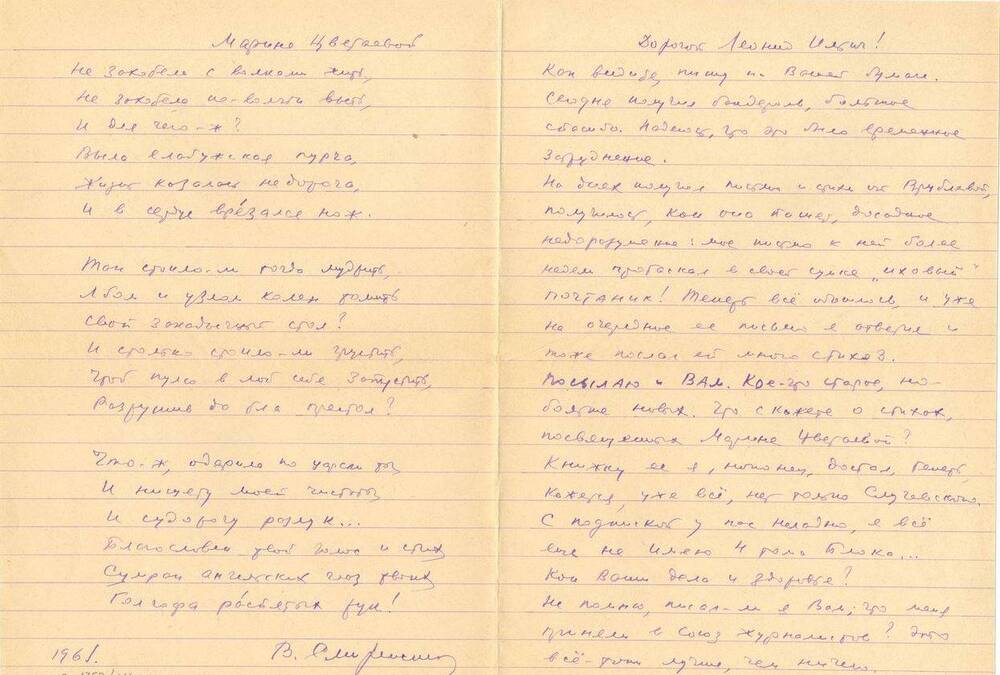 Марине Цветаевой
Не захотела с волками жить,
Не захотела по-волчьи выть,
И для чего-ж?
Выла елабужская пурга,
Жизнь казалась недорога,
И в сердце врезался нож.
Так стоило-ли тогда мудрить,
Лбом и узлом колен томить
Свой закадычный стол?
И столько стоило-ли грустить,
Чтоб пулю в лоб себе запустить,
Разрушив до тла престол?
Что-ж, одарила по царски ты
И нищету моей чистоты
И судорогу разлук...
Благословен твой голос и стих
Сумрак ангельских глаз твоих
Голгофа распятых рук!
1961.
В. Смиренский
Дорогой Леонид Ильич!
Как видите, пишу на Вашей бумаге.
Сегодня получил бандероль, большое
спасибо. Надеюсь, что это было временное
затруднение.
На днях получил письмо и стихи от Врублевой,
получилось, как она пишет, досадное
недоразумение: мое письмо к ней более
недели протаскал в своей сумке
почтальон! Теперь всё обошлось, и уже
на очередное ее письмо я ответил и
тоже послал ей много стихов.
Посылаю и Вам. Кое-что старое, но-
больше новых. Что скажете о стихах,
посвященных Марине Цветаевой?
Книжку ее я, наконец, достал, теперь,
кажется, уже всё, нет только Случевского.
С подпиской у нас неладно, я всё
еще не имею 4 тома Блока...
Как Ваши дела и здоровье?
Не помню, писал-ли я Вам, что меня
приняли в Союз журналистов? Это
всё-таки лучше, чем ничего.